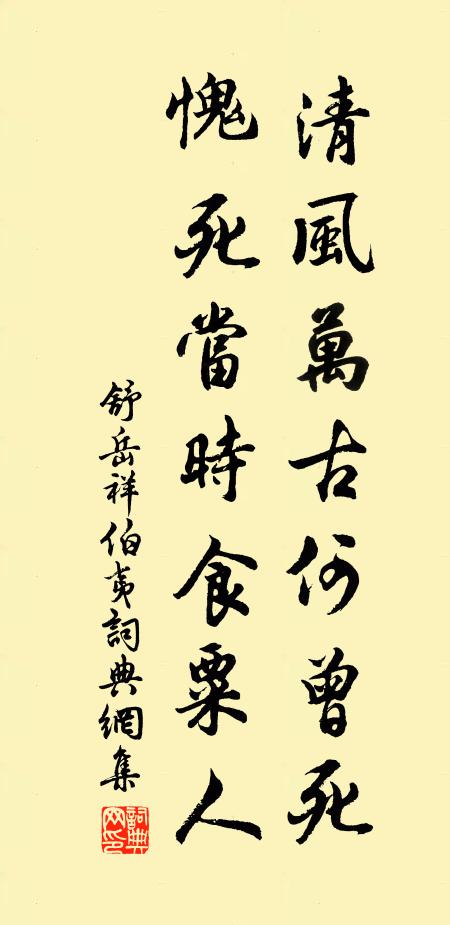 清風萬古何曾死
愧死當時食粟人
舒岳祥伯夷詞典網集
詞典网印